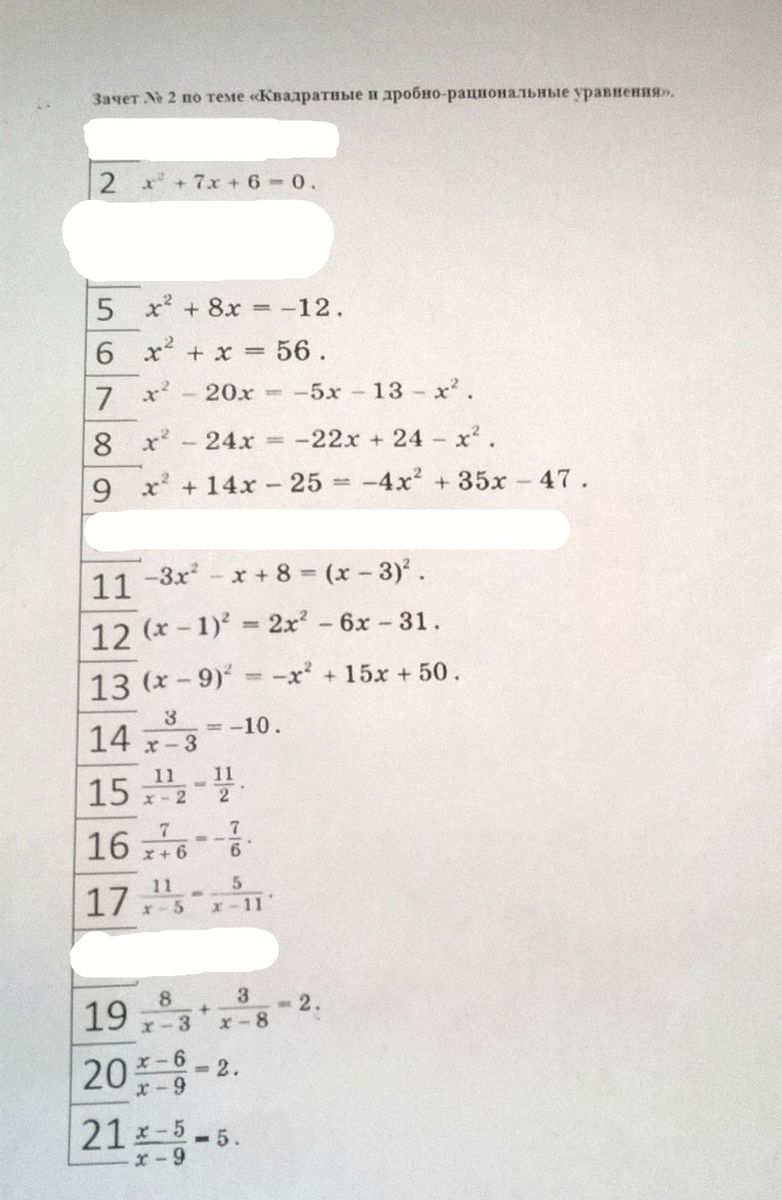 Зачет № 2 по теме «Квадратные и дробно-рациональные уравнения».
2 x² + 7x + 6 = 0.
5 x² + 8x = −12.
6 x² + x = 56.
7 x² − 20x = −5x − 13 − x².
8 x² − 24x = −22x + 24 − x².
9 x² + 14x − 25 = −4x² + 35x − 47.
11 −3x² − x + 8 = (x − 3)².
12 (x − 1)² = 2x² − 6x − 31.
13 (x − 9)² = −x² + 15x + 50.
14 3/(x − 3) = −10.
15 11/(x − 2) = 11/2.
16 7/(x + 6) = −7/6.
17 11/(x − 5) = 5/(x − 11).
19 8/(x − 3) + 3/(x − 8) = 2.
20 (x − 6)/(x − 9) = 2.
21 (x − 5)/(x − 9) = 5.